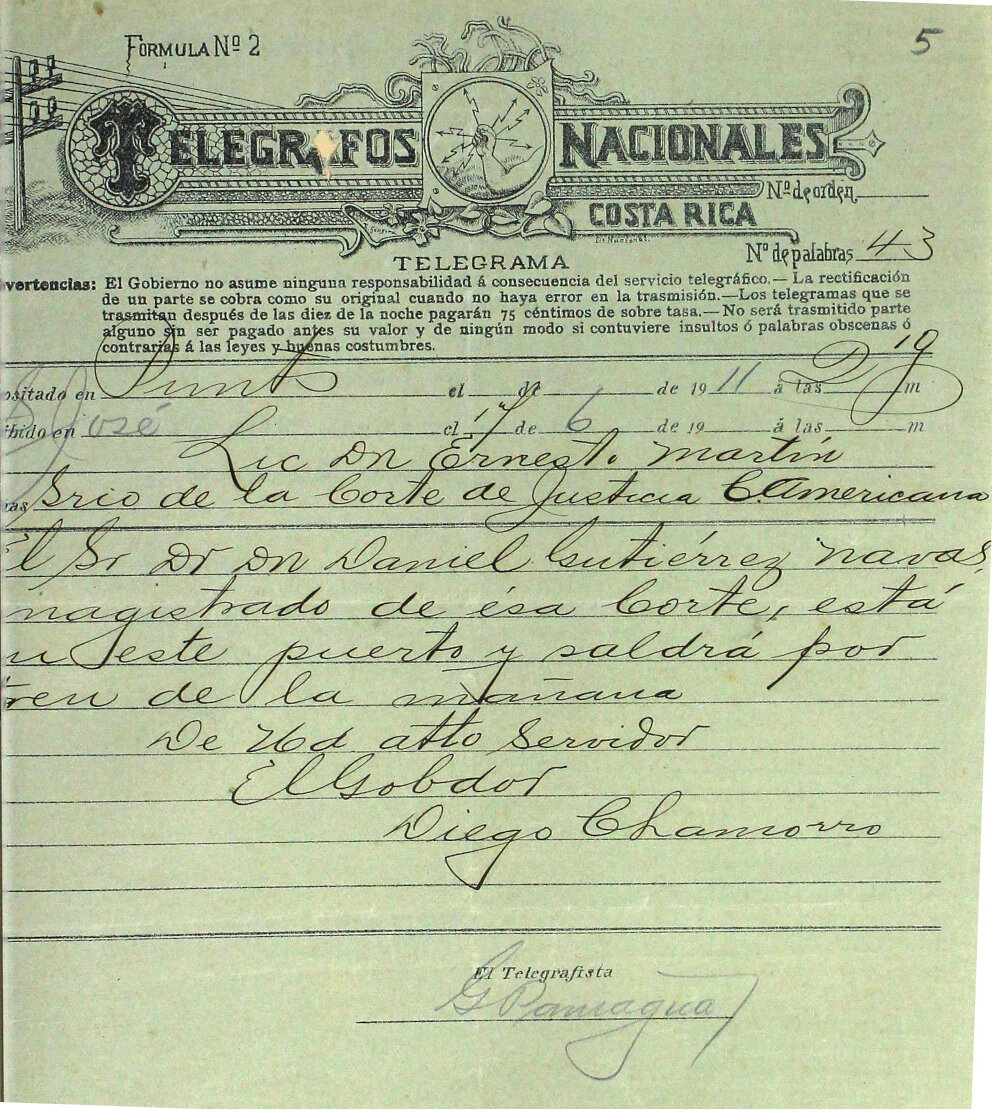 5
FORMULA Nº 2
TELEGRAFOS NACIONALES
Nº de orden
COSTA RICA
Nº de palabras 43
TELEGRAMA
vertencias: El Gobierno no asume ninguna responsabilidad á consecuencia del servicio telegráfico.— La rectificación
de un parte se cobra como su original cuando no haya error en la trasmisión.—Los telegramas que se
trasmitan después de las diez de la noche pagarán 75 céntimos de sobre tasa.— No será trasmitido parte
alguno sin ser pagado antes su valor y de ningún modo si contuviere insultos ó palabras obscenas ó
contrarias á las leyes y buenas costumbres.
ositado en Punts el de de 1911 á las m
ibido en S José el 17 de 6 de 19 á las m
Lic Dn Ernesto Martín
Srio de la Corte de Justicia C. Americana
El Sr Dr Dn Daniel Gutiérrez Navas,
magistrado de ésa Corte, está
en este puerto y saldrá por
tren de la mañana
De Ud atto Servidor
El Gobdor
Diego Chamorro
El Telegrafista
G Paniagua